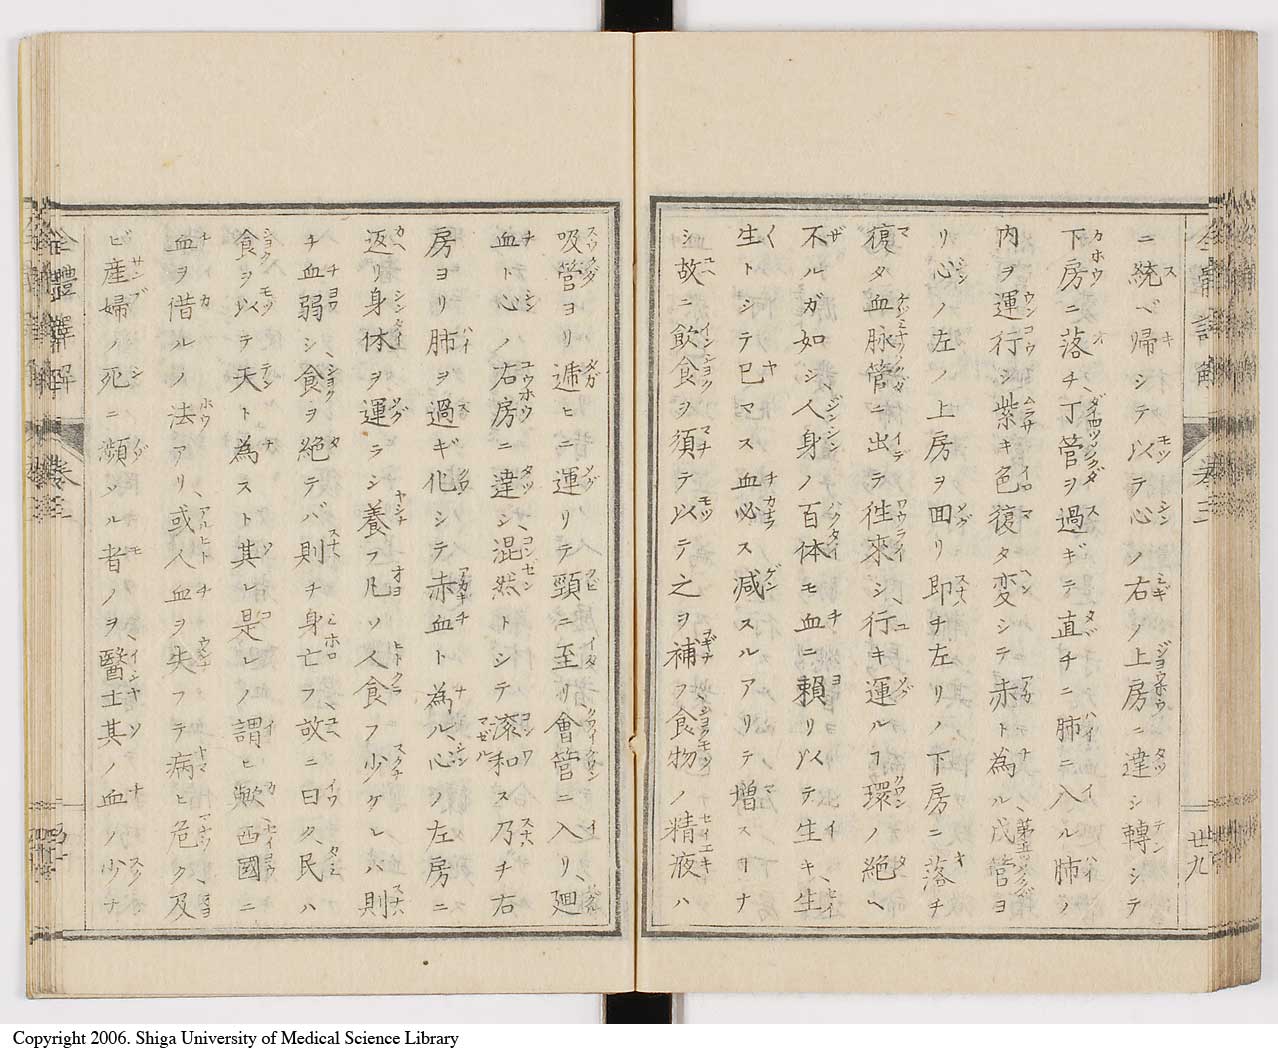 ニ統ベ歸シテ以テ心ノ右ノ上房ニ達シ轉シテ
下房ニ落チ、丁管ヲ過ギテ直チニ肺ニ入ル肺ノ
内ヲ運行シ紫キ色復タ変シテ赤ト為ル、戊管ヨ
リ心ノ左ノ上房ヲ回リ即チ左リノ下房ニ落チ
復タ血脉管ニ出テ徃來シ、行キ運ルヿ環ノ絶ヘ
不ルガ如シ、人身ノ百体モ血ニ賴リ以テ生キ生
生トシテ已マス血必ス減スルアリテ増スヿナ
シ故ニ飲食ヲ須テ以テ之ヲ補フ、食物ノ精液ハ
卷三
廿九
吸管ヨリ逓ヒニ運リテ頸ニ至リ會管ニ入リ、廻
血ト心ノ右房ニ達シ、混然トシテ滚和ス乃チ右
房ヨリ肺ヲ過ギ化シテ赤血ト為ル、心ノ左房ニ
返リ身体ヲ運ラシ養フ凡ソ人食フ少ケレハ則
チ血弱シ、食ヲ絶テバ則チ身亡フ、故ニ曰ク民ハ
食ヲ以テ天ト為スト其レ是レノ謂ヒ歟西國ニ
血ヲ借ルノ法アリ、或人血ヲ失フテ病ヒ危ク、及
ビ産婦ノ死ニ瀕タル者ノヲ、醫士其ノ血ノ少ナ
全體譯解
卷三
Copyright 2006. Shiga University of Medical Science Library